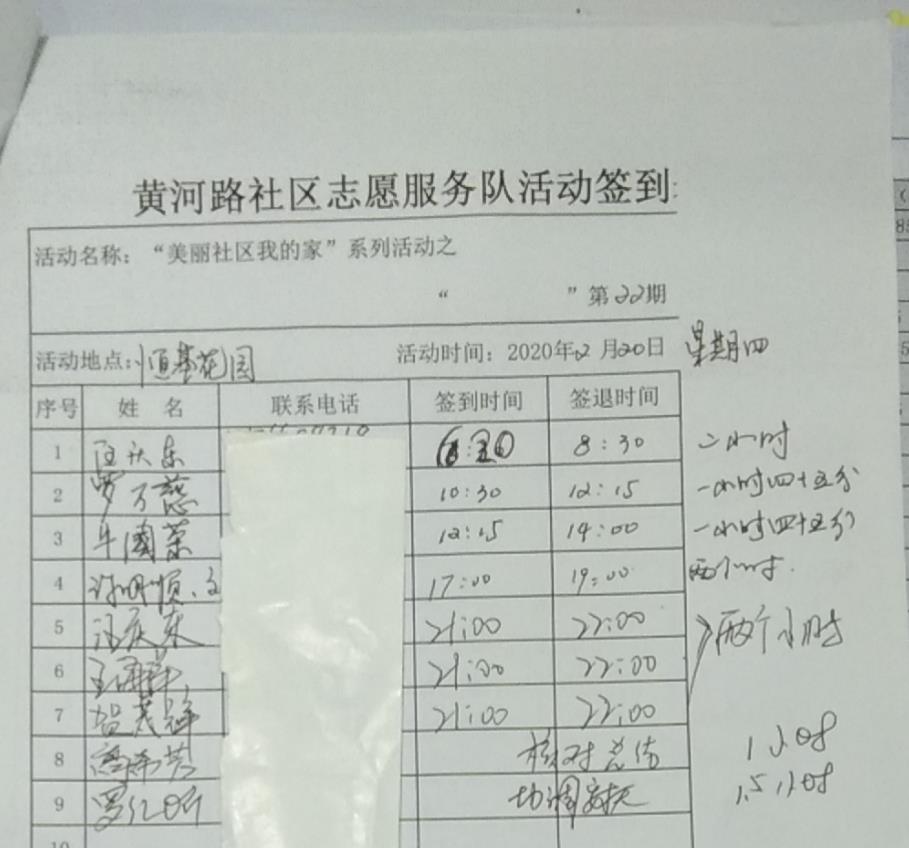 黄河路社区志愿服务队活动签到
活动名称：“美丽社区我的家”系列活动之
“ ”第22期
活动地点：恒基花园 活动时间：2020年2月20日 星期四
序号 姓名 联系电话 签到时间 签退时间
1 东 8:30 二小时
2 罗万慈 10:30 12:15 一小时四十五分
3 牛国荣 12:15 14:00 一小时四十五分
4 17:00 19:00 两个小时.
5 汪庆东 21:00 22:00 两个小时
6 21:00 22:00
7 贺茂辉 21:00 22:00
8 核对总结 1小时
9 协调 1.5小时
10